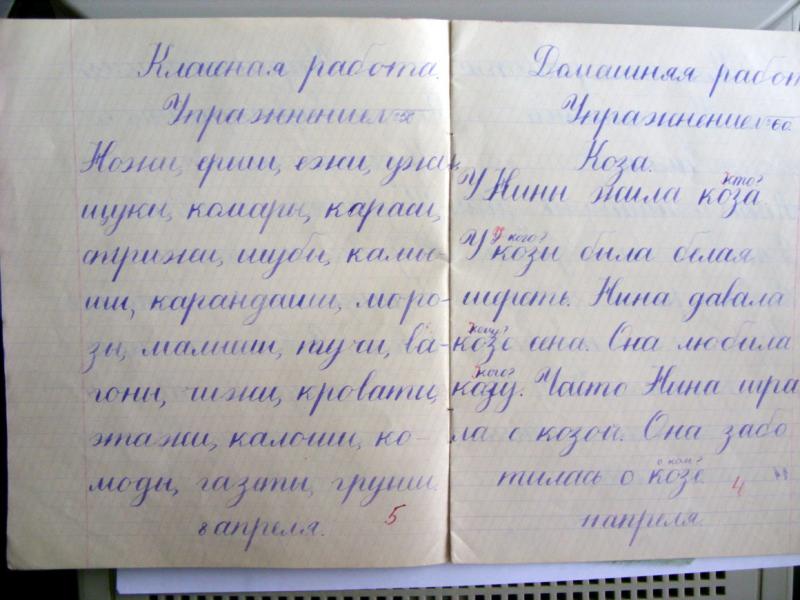 Классная работа.
Упражнение №58
Ножи, ерши, ежи, ужи,
щуки, комары, караси,
стрижи, шубы, камы-
ши, карандаши, моро-
зы, малыши, тучи, ва-
гоны, чижи, кровати,
этажи, калоши, ко-
моды, газеты, груши.
8 апреля.
5
Домашняя работ
Упражнение №60
Коза.
кто?
У Нины жила коза.
у кого?
У козы была белая
шерсть. Нина давала
кому?
козе сена. Она любила
кого?
козу. Часто Нина игра
ла с козой. Она забо
о ком?
тилась о козе.
4
апреля.